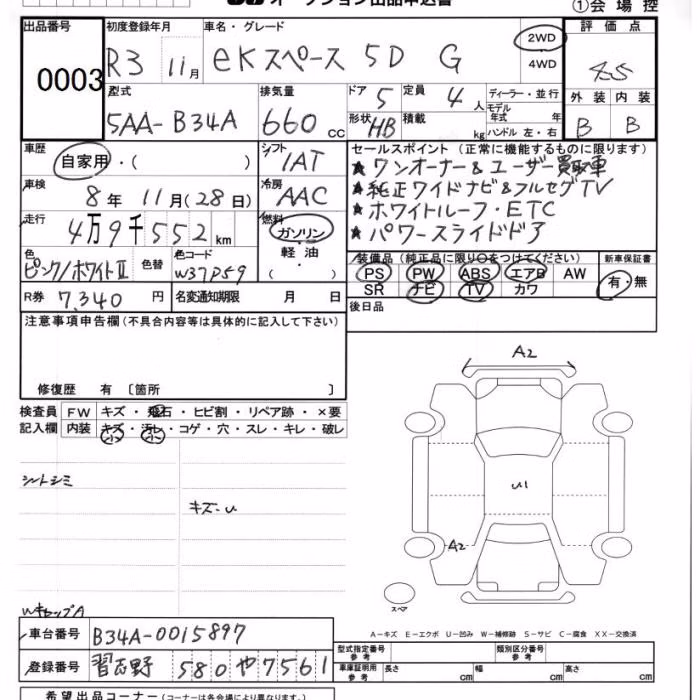 オークション出品申込書
①会場控
出品番号 0003
初度登録年月 R3 11月
車名・グレード eKスペース 5D G
2WD
4WD
評価点
型式 5AA-B34A
排気量 660 cc
ドア 5
定員 4人
形状 HB
積載 kg
ディーラー・並行
モデル年式 年
ハンドル 左・右
外装 B
内装 B
車歴 自家用・( )
シフト IAT
車検 8年 11月(28日)
冷房 AAC
走行 4万9千552km
燃料 ガソリン・軽油・( )
色 ピンク/ホワイトⅡ
色替
色コード W37P59
R券 7,340 円
名変通知期限 月 日
セールスポイント (正常に機能するものに限ります)
★ワンオーナー&ユーザー買取車
★純正ワイドナビ&フルセグTV
★ホワイトルーフ・ETC
★パワースライドドア
装備品 (純正品に限り○をつけてください)
新車保証書
PS PW ABS エアB AW
有・無
SR ナビ TV カワ
後日品
注意事項申告欄(不具合内容等は具体的に記入して下さい)
修復歴 有 〔箇所 〕
検査員記入欄
FW キズ・飛石・ヒビ割・リペア跡・×要
内装 キズ・汚レ・コゲ・穴・スレ・キレ・破レ
シートシミ
キズ・U
WキャップA
A2
U1
A2
スペア
A-キズ E-エクボ U-凹み W-補修跡 S-サビ C-腐食 XX-交換済
車台番号 B34A-0015897
登録番号 習志野 580 や 7561
型式指定番号 参考
類別区分番号 参考
車庫証明用 参考 長さ cm 幅 cm 高さ cm
希望出品コーナー(コーナーは各会場により異なります。)